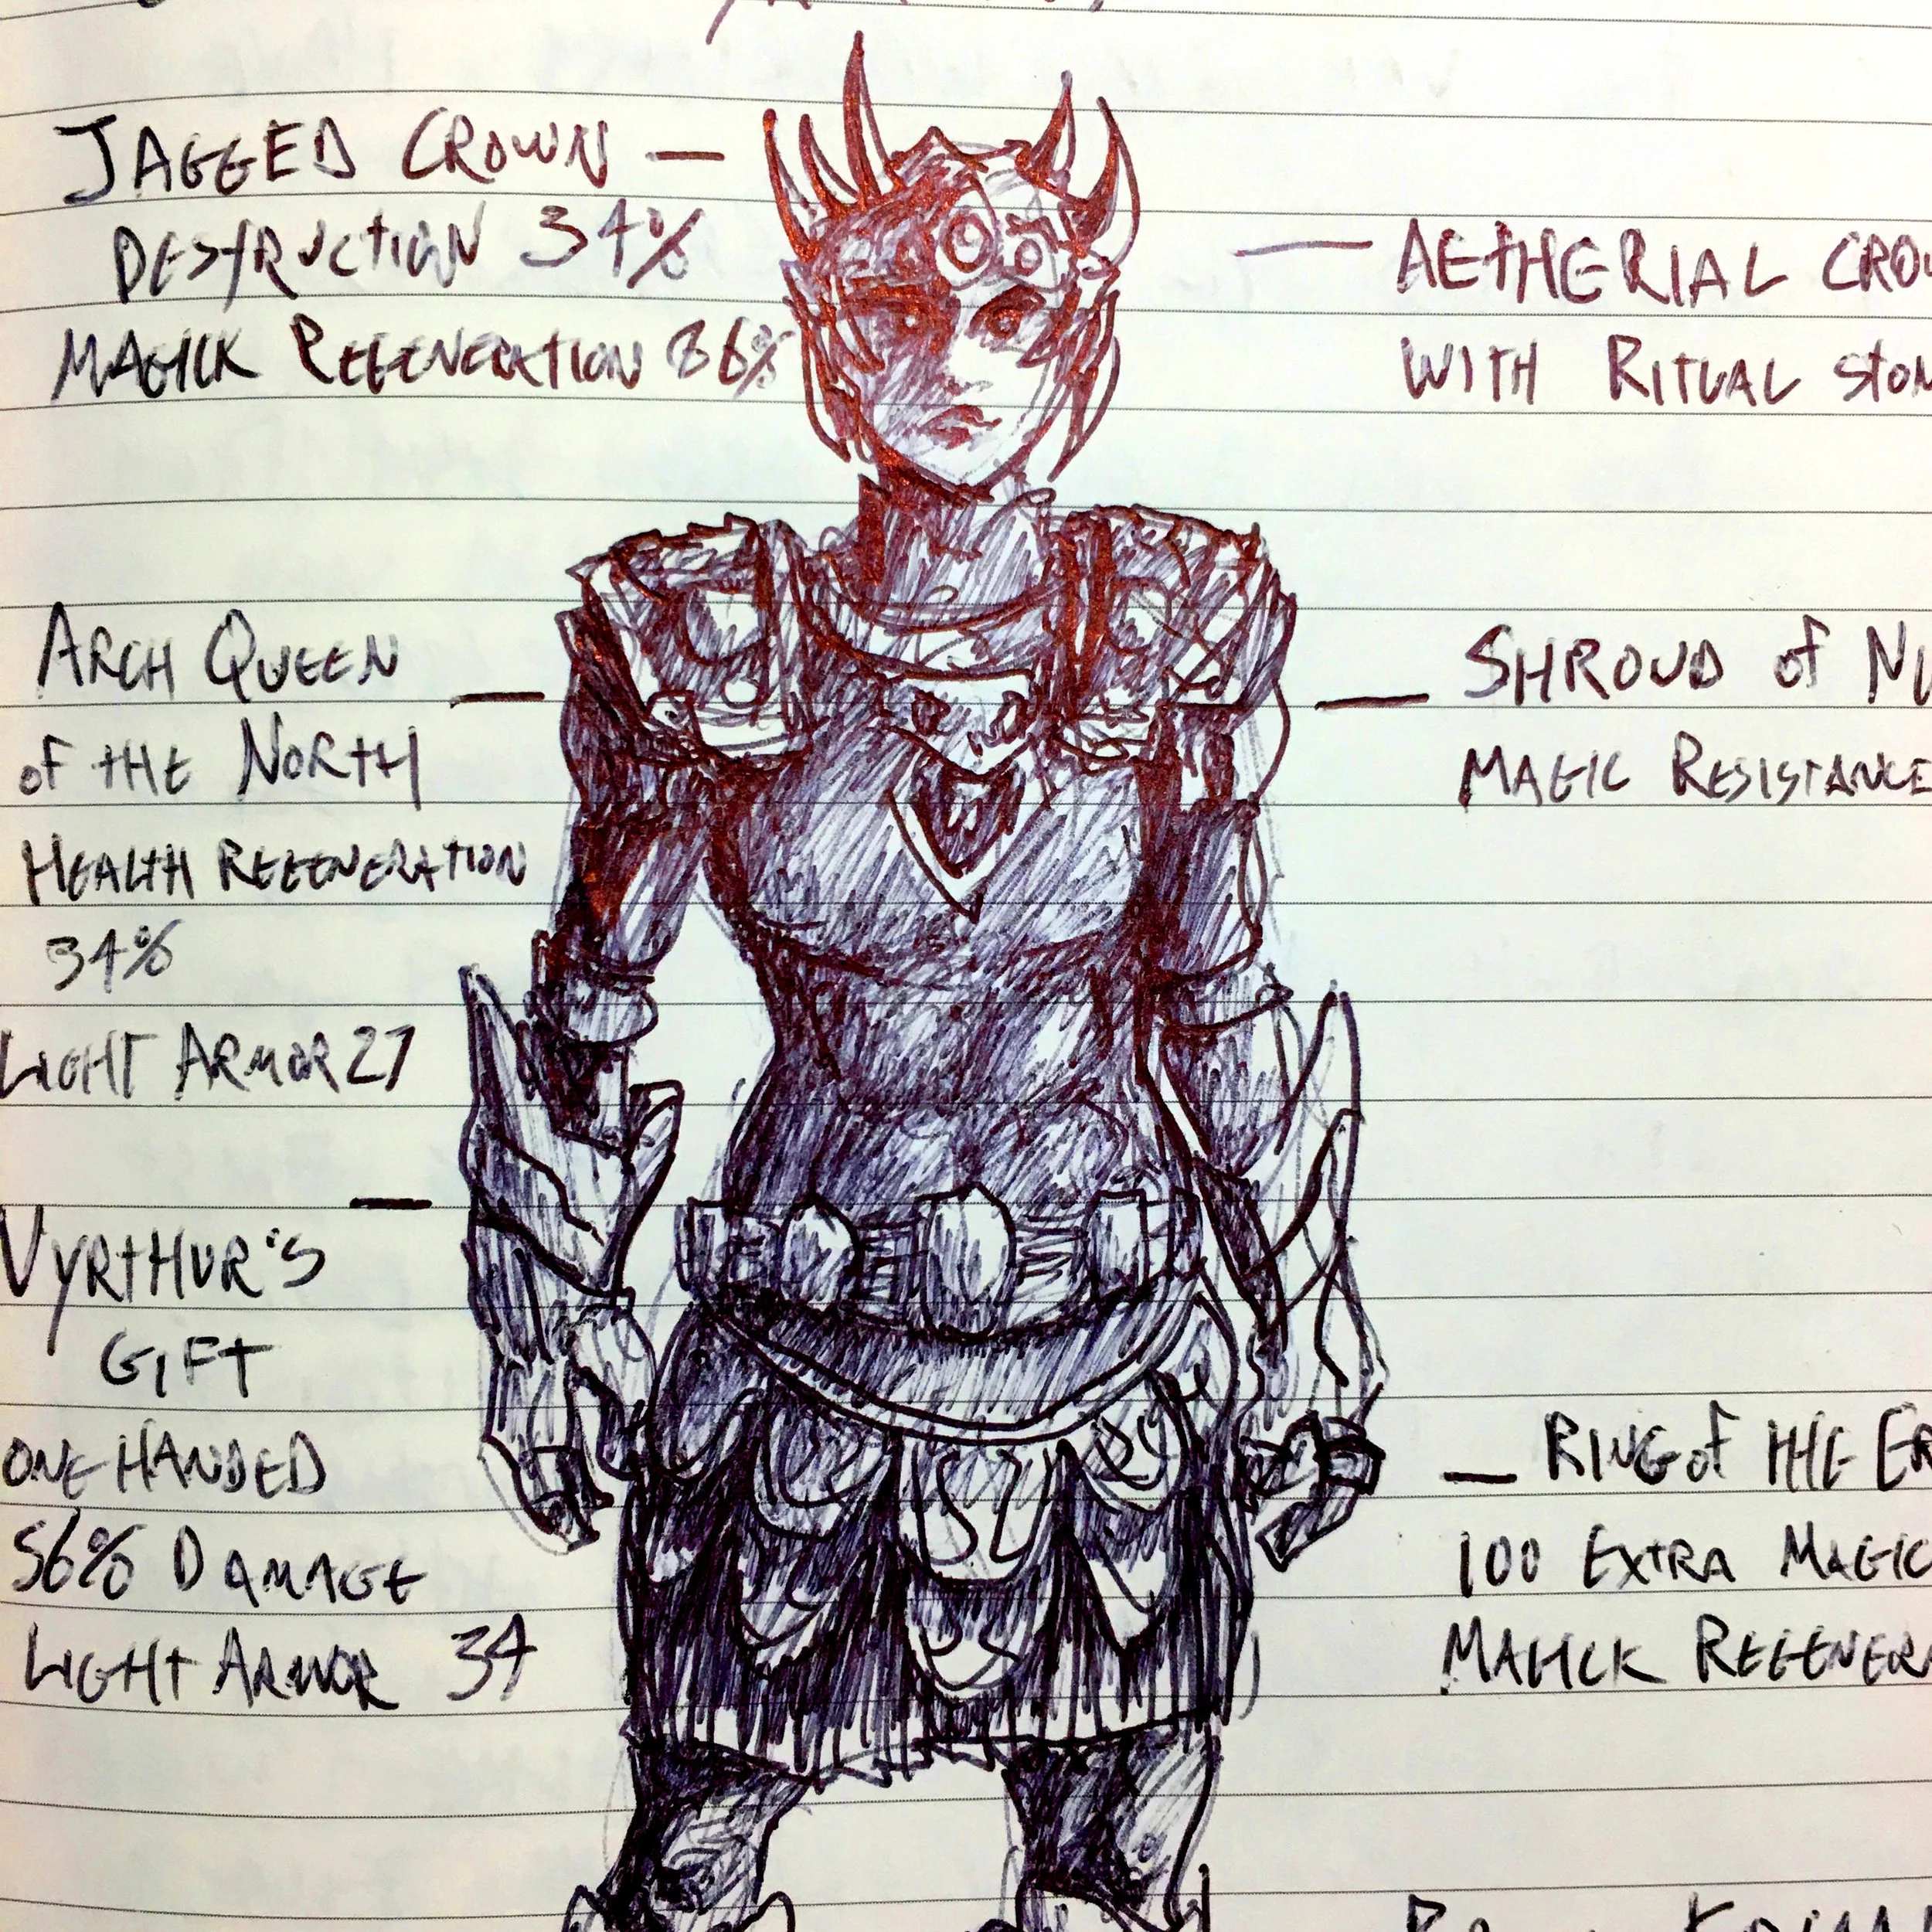 JAGGED CROWN —
DESTRUCTION 34%
MAGICK REGENERATION 86%
— AETHERIAL CROW
WITH RITUAL STON
ARCH QUEEN —
OF THE NORTH
HEALTH REGENERATION
34%
LIGHT ARMOR 27
— SHROUD of NI
MAGIC RESISTANCE
VYRTHUR'S —
GIFT
ONE HANDED
56% DAMAGE
LIGHT ARMOR 34
— RING of THE ER
100 EXTRA MAGIC
MAGICK REGENERA